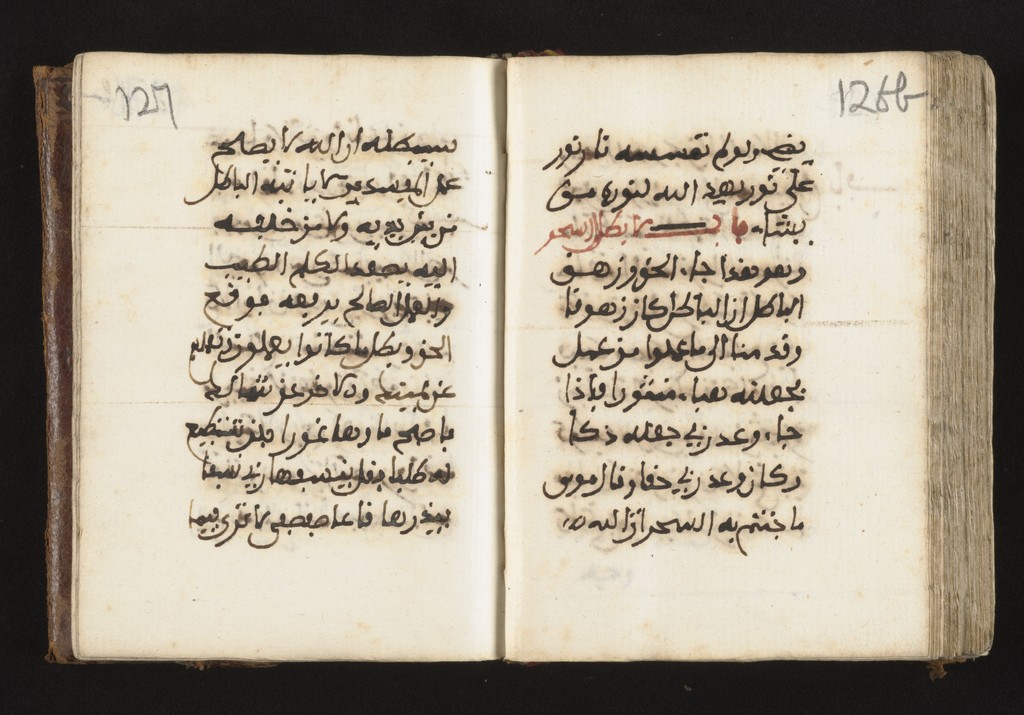 126b
يضيء ولو لم تمسسه نار نور
على نور يهد الله لنوره من
يشاء باب لابطال السحر
وهو هذا جاء الحق وزهق
الباطل ان الباطل كان زهوقا
وقدمنا الى ما عملوا من عمل
فجعلنه هباء منثورا فاذا
جاء وعد ربي جعله دكا
وكان وعد ربي حقا وقال موسى
ما جئتم به السحر ان الله
127
سيبطله ان الله لا يصلح
عمل المفسدين لا ياتيه الباطل
من بين يديه ولا من خلفه
اليه يصعد الكلم الطيب
والعمل الصالح يرفعه فوقع
الحق وبطل ما كانوا يعملون
عن يمينهم
ماؤها غورا فلن تستطيع
له طلبا فقل ينسفها ربي نسفا
فيذرها قاعا صفصفا لا ترى فيها